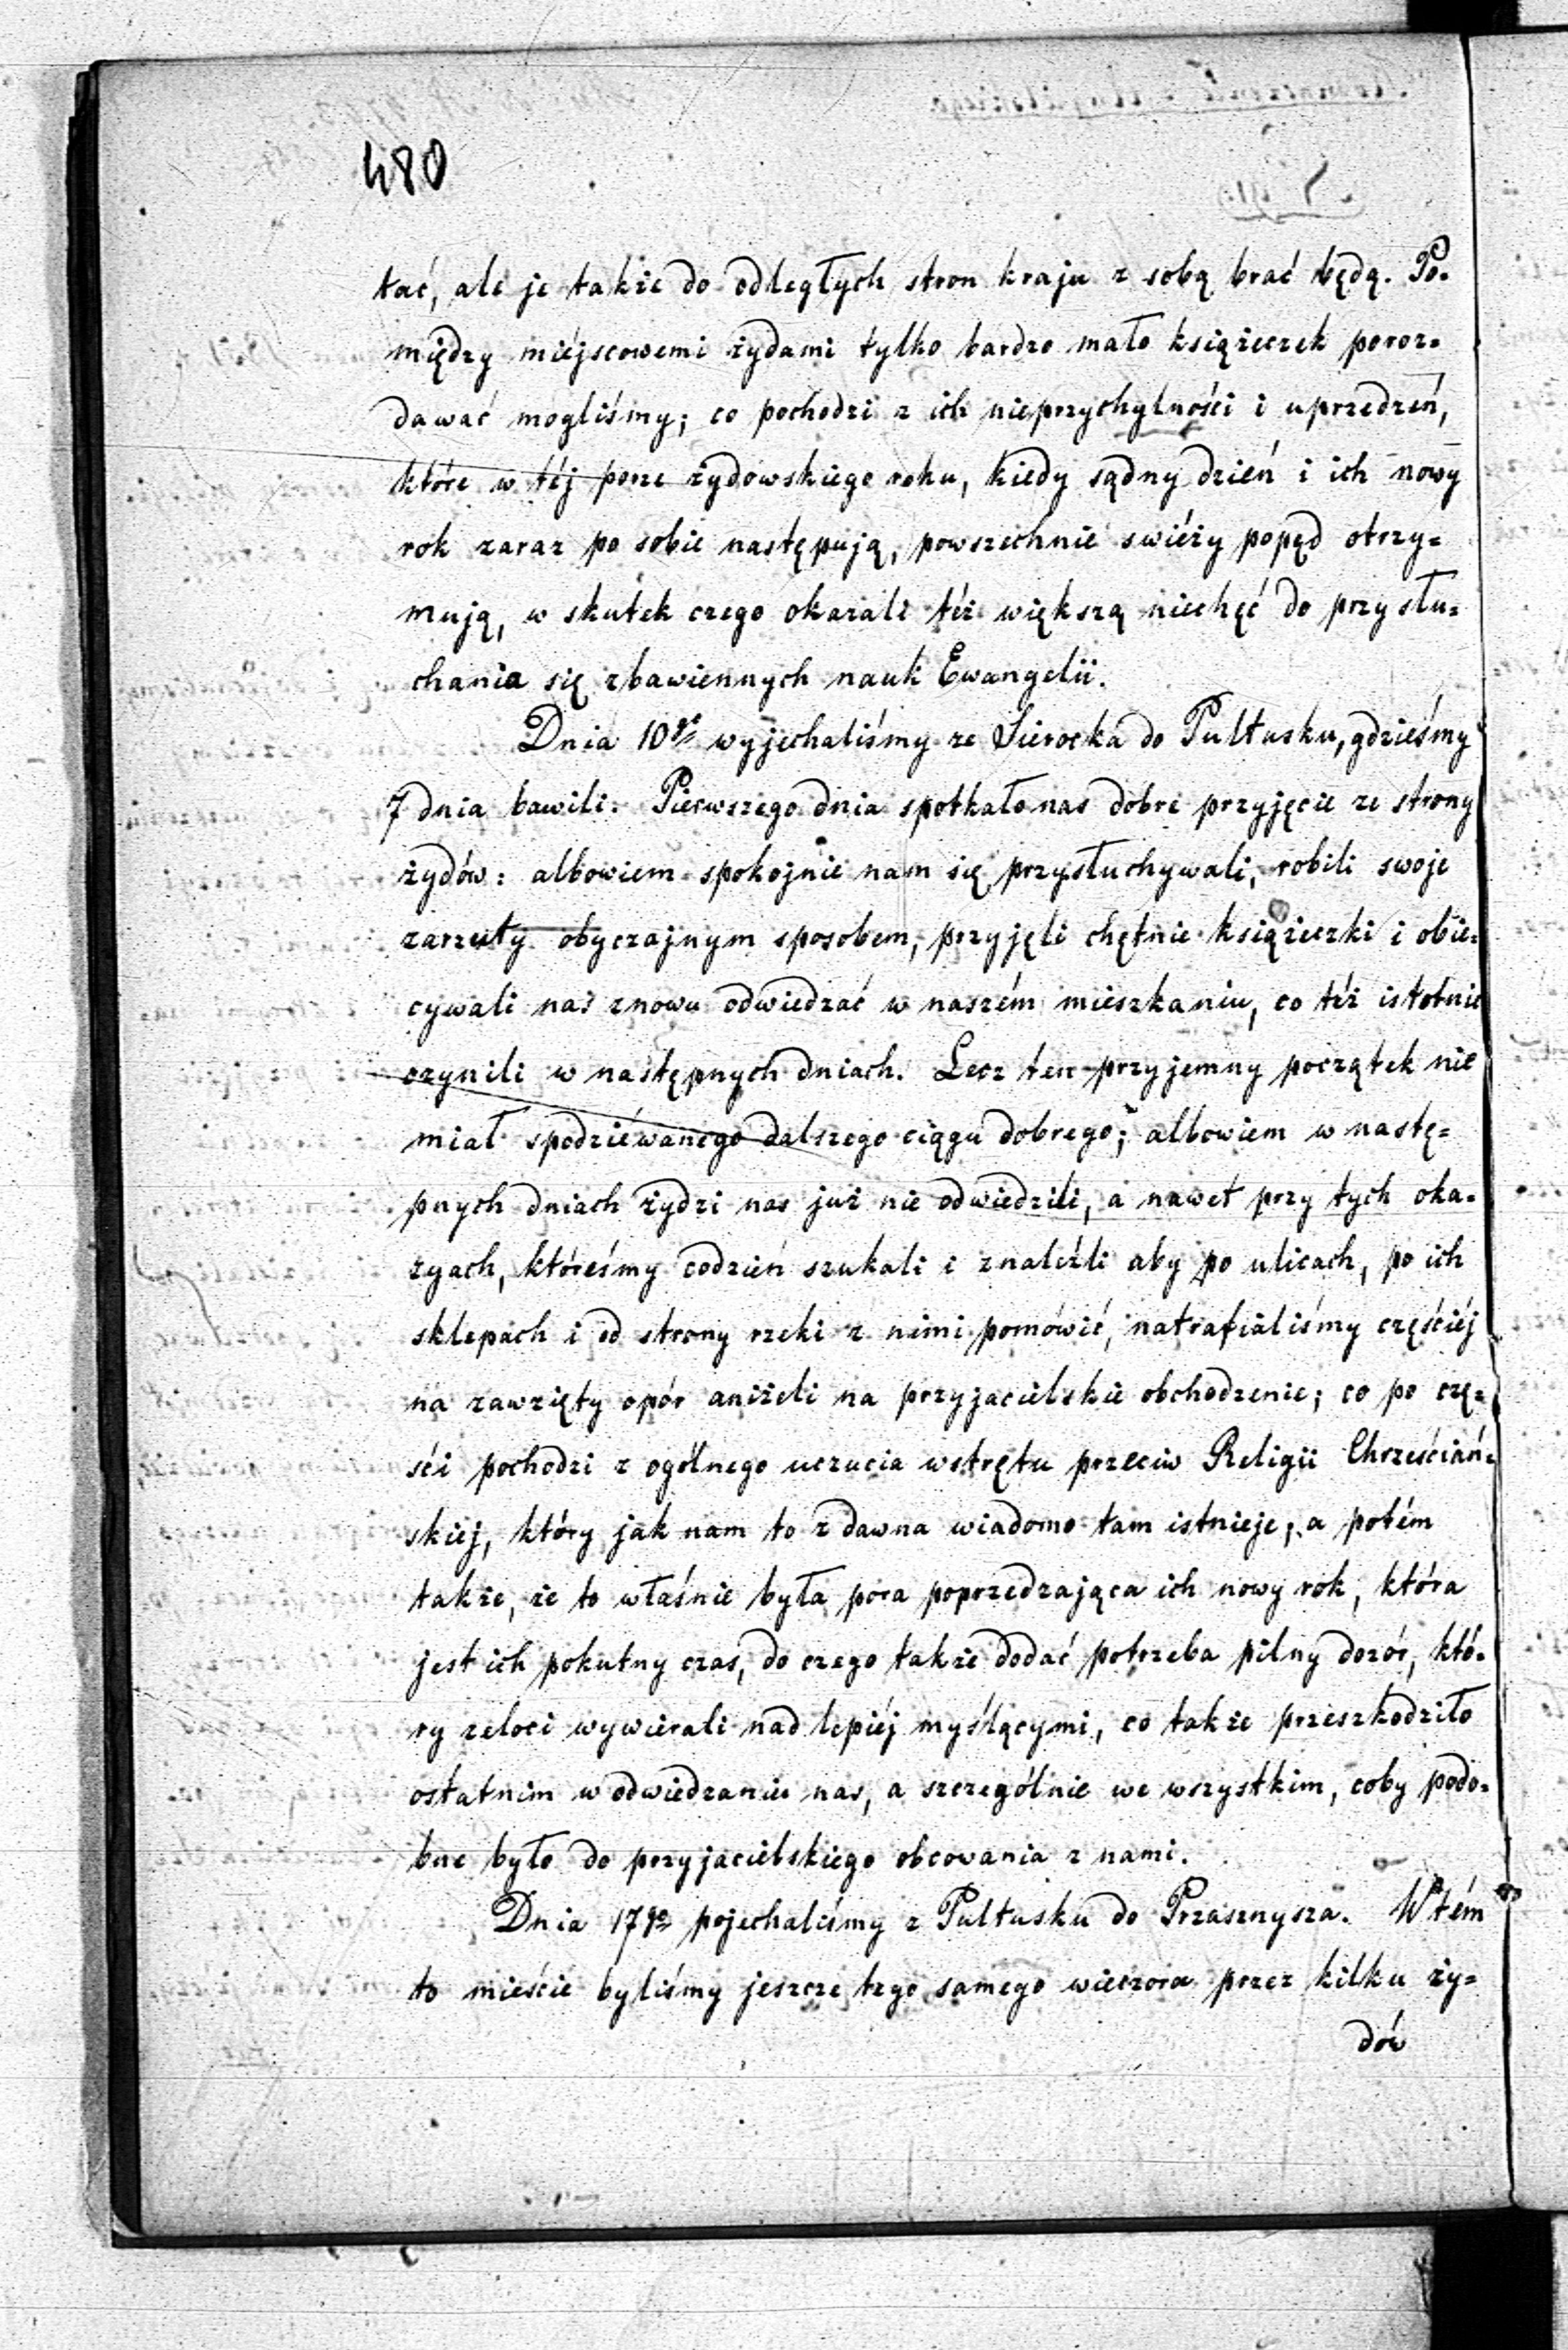 480
tać, ale je także do odległych stron kraju z sobą brać będą. Po-
między miéjscowemi żydami tylko bardzo mało książeczek poroz=
dawać mogliśmy; co pochodzi z ich nieprzychylności i uprzedzeń,
które w téj porze żydowskiego roku, kiedy sądny dzień i ich nowy
rok zaraz po sobie następują, powszechnie swiéży popęd otrzy=
mują, w skutek czego okazali téż większą niechęć do przysłu=
chania się zbawiennych nauk Ewangelii.
Dnia 10go wyjechaliśmy ze Sierocka do Pułtusku, gdzieśmy
7 dnia bawili. Pierwszego dnia spotkało nas dobre przyjęcie ze strony
żydów: albowiem spokojnie nam się przysłuchywali, robili swoje
zarzuty obyczajnym sposobem, przyjęli chętnie książeczki i obie=
cywali nas znowu odwiedzać w naszém mieszkaniu, co téż istotnie
czynili w następnych dniach. Lecz ten przyjemny początek nie
miał spodziéwanego dalszego ciągu dobrego; albowiem w nastę=
pnych dniach żydzi nas już nie odwiedzili, a nawet przy tych oka-
zyach, któreśmy codzień szukali i znaleźli aby po ulicach, po ich
sklepach i od strony rzeki z nimi pomówić, natrafialiśmy częściéj
na zawzięty opór aniżeli na przyjacielskie obchodzenie; co po czę=
ści pochodzi z ogólnego uczucia wstrętu przeciw Religii Chrześciań=
skiej, który jak nam to z dawna wiadomo tam istnieje; a potém
także, że to właśnie była pora poprzedzająca ich nowy rok, która
jest ich pokutny czas, do czego także dodać potrzeba pilny dozór, któ-
ry zeloci wywiérali nad lepiéj myślącymi, co także przeszkodziło
ostatnim w odwiedzaniu nas, a szczególnie we wszystkim, coby podo-
bne było do przyjacielskiego obcowania z nami.
Dnia 17go pojechaliśmy z Pułtusku do Przasznysza. W tém
to mieście byliśmy jeszcze tego samego wieczora przez kilku ży=
dów